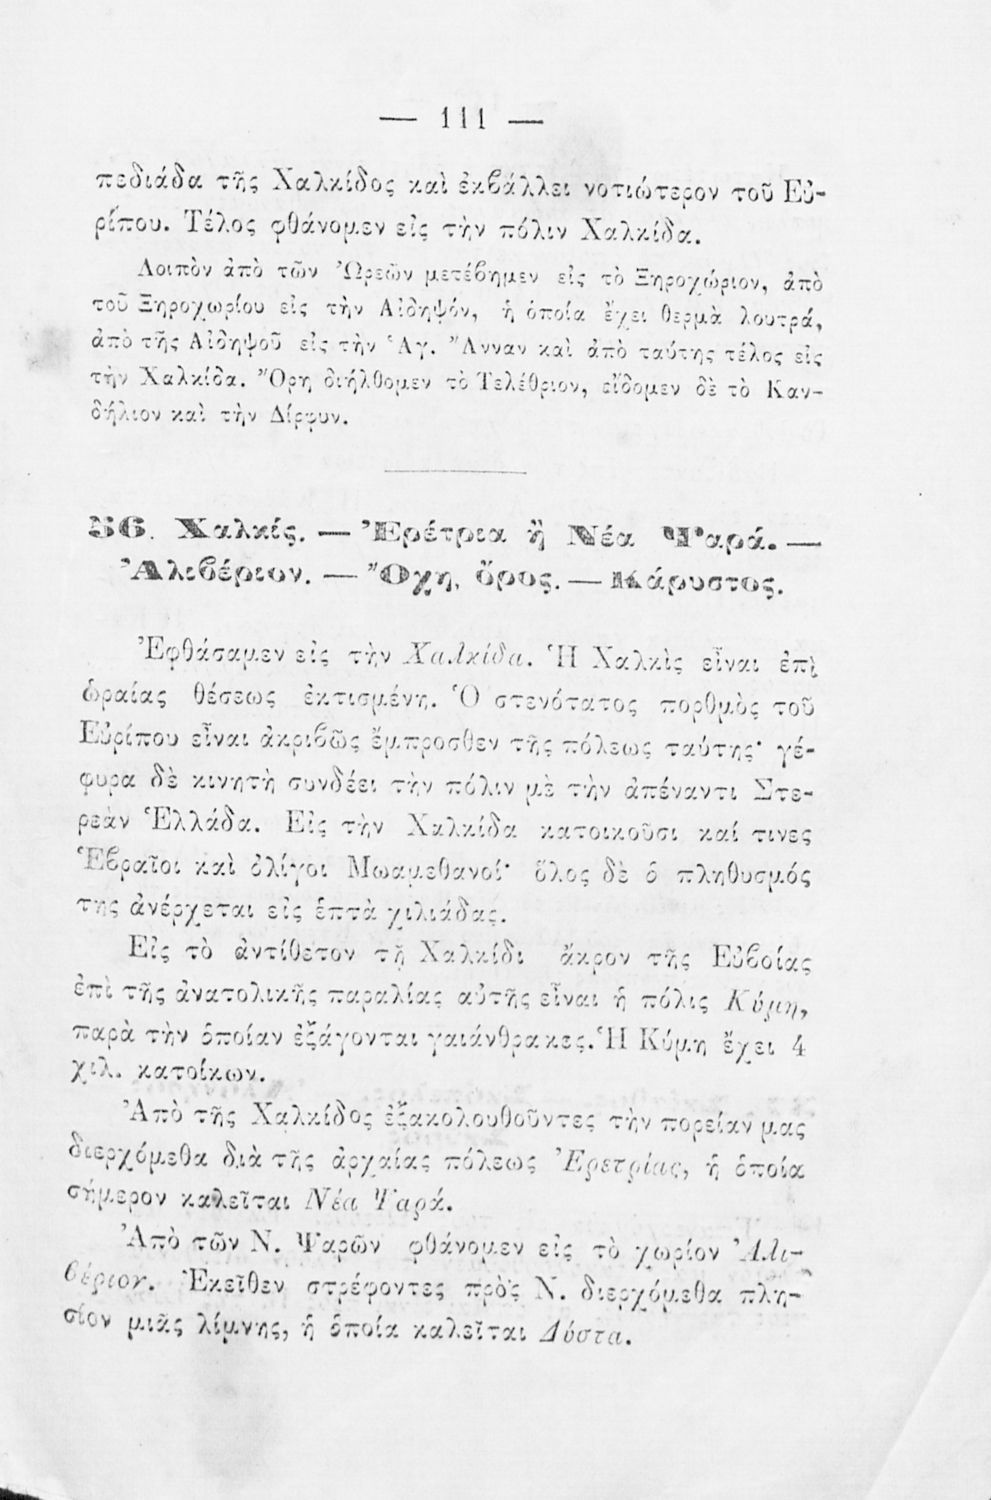 — 111 —
πεδιάδα τῆς Χαλκίδος καὶ ἐκβάλλει νοτιώτερον τοῦ Εὐ-
ρίπου. Τέλος φθάνομεν εἰς τὴν πόλιν Χαλκίδα.
Λοιπὸν ἀπὸ τῶν Ὠρεῶν μετέβημεν εἰς τὸ Ξηροχώριον, ἀπὸ
τοῦ Ξηροχωρίου εἰς τὴν Αἰδηψόν, ἡ ὁποία ἔχει θερμὰ λουτρά,
ἀπὸ τῆς Αἰδηψοῦ εἰς τὴν Ἁγ. Ἄνναν καὶ ἀπὸ ταύτης τέλος εἰς
τὴν Χαλκίδα. Ὄρη διήλθομεν τὸ Τελέθριον, εἴδομεν δὲ τὸ Καν-
δήλιον καὶ τὴν Δίρφυν.
56. Χαλκίς. — Ἐρέτρια ἢ Νέα Ψαρά. —
Ἀλιβέριον. — Ὄχη, ὄρος. — Κάρυστος.
Ἐφθάσαμεν εἰς τὴν Χαλκίδα. Ἡ Χαλκὶς εἶναι ἐπὶ
ὡραίας θέσεως ἐκτισμένη. Ὁ στενότατος πορθμὸς τοῦ
Εὐρίπου εἶναι ἀκριβῶς ἔμπροσθεν τῆς πόλεως ταύτης· γέ-
φυρα δὲ κινητὴ συνδέει τὴν πόλιν μὲ τὴν ἀπέναντι Στε-
ρεὰν Ἑλλάδα. Εἰς τὴν Χαλκίδα κατοικοῦσι καί τινες
Ἑβραῖοι καὶ ὀλίγοι Μωαμεθανοί· ὅλος δὲ ὁ πληθυσμός
της ἀνέρχεται εἰς ἑπτὰ χιλιάδας.
Εἰς τὸ ἀντίθετον τῇ Χαλκίδι ἄκρον τῆς Εὐβοίας
ἐπὶ τῆς ἀνατολικῆς παραλίας αὐτῆς εἶναι ἡ πόλις Κύμη,
παρὰ τὴν ὁποίαν ἐξάγονται γαιάνθρακες. Ἡ Κύμη ἔχει 4
χιλ. κατοίκων.
Ἀπὸ τῆς Χαλκίδος ἐξακολουθοῦντες τὴν πορείαν μας
διερχόμεθα διὰ τῆς ἀρχαίας πόλεως Ἐρετρίας, ἡ ὁποία
σήμερον καλεῖται Νέα Ψαρά.
Ἀπὸ τῶν Ν. Ψαρῶν φθάνομεν εἰς τὸ χωρίον Ἀλι-
βέριον. Ἐκεῖθεν στρέφοντες πρὸς Ν. διερχόμεθα πλη-
σίον μιᾶς λίμνης, ἡ ὁποία καλεῖται Δύστα.